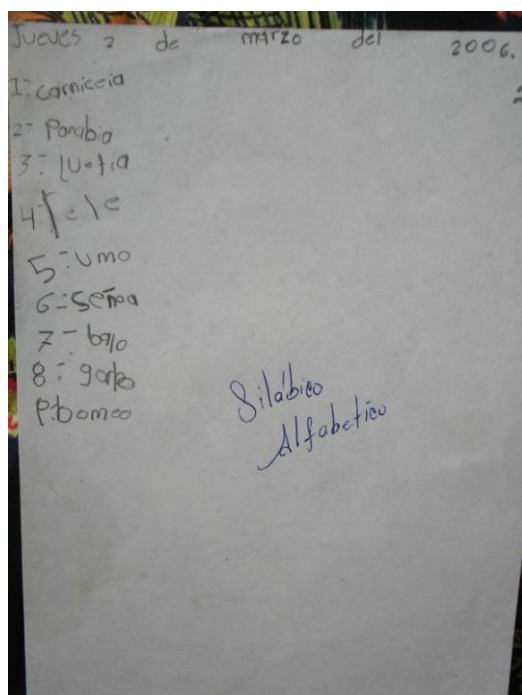 Jueves 2 de marzo del 2006.
1- carniceia
2- Panabia
3- luetia
4- Tele
5- umo
6- Señoa
7- bajo
8- garto
P: bomeo
Silábico
Alfabetico